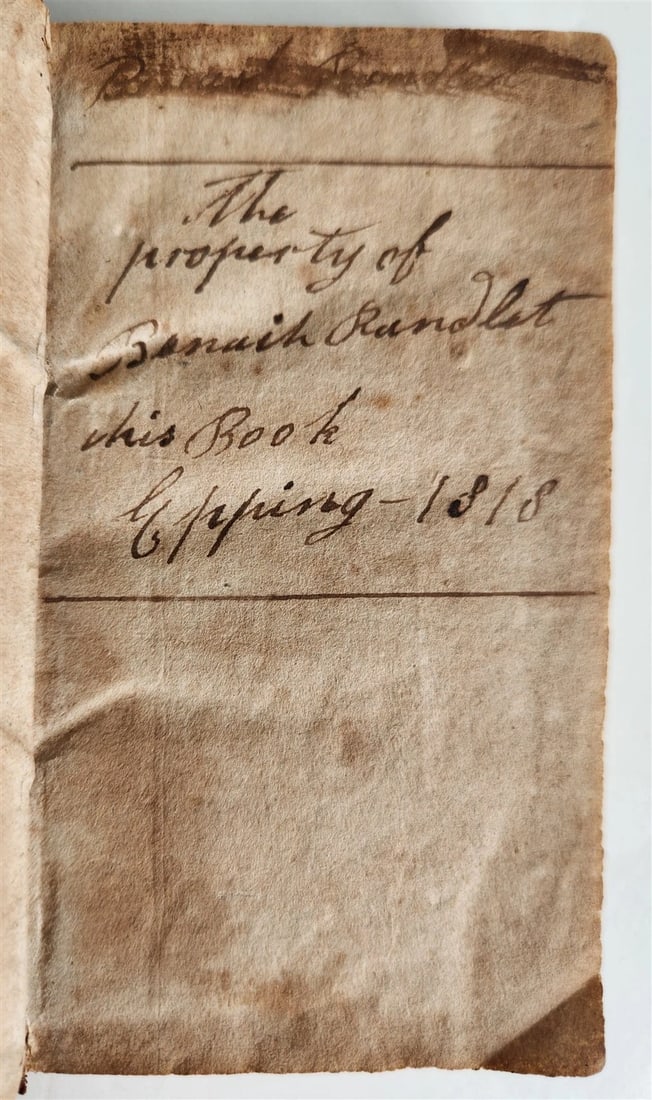 The
property of
Benaiah Randlet
this Book
Epping - 1818